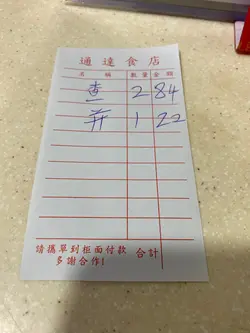 通達食店
名 稱 數量 金額
查 2 84
并 1 22
請攜單到柜面付款 合計
多謝合作!